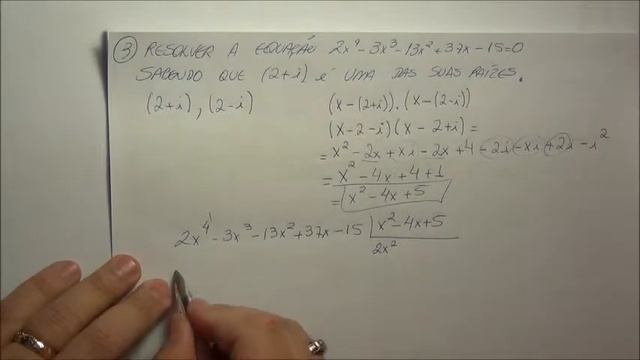 ③ RESOLVER A EQUAÇÃO 2x⁴-3x³-13x²+37x-15=0
SABENDO QUE (2+i) é UMA DAS SUAS RAÍZES.
(2+i), (2-i)
(x-(2+i)).(x-(2-i))
(x-2-i)(x-2+i)=
=x²-2x+xi-2x+4-2i-xi+2i-i²
=x²-4x+4+1
=x²-4x+5
2x⁴-3x³-13x²+37x-15 | x²-4x+5
2x²